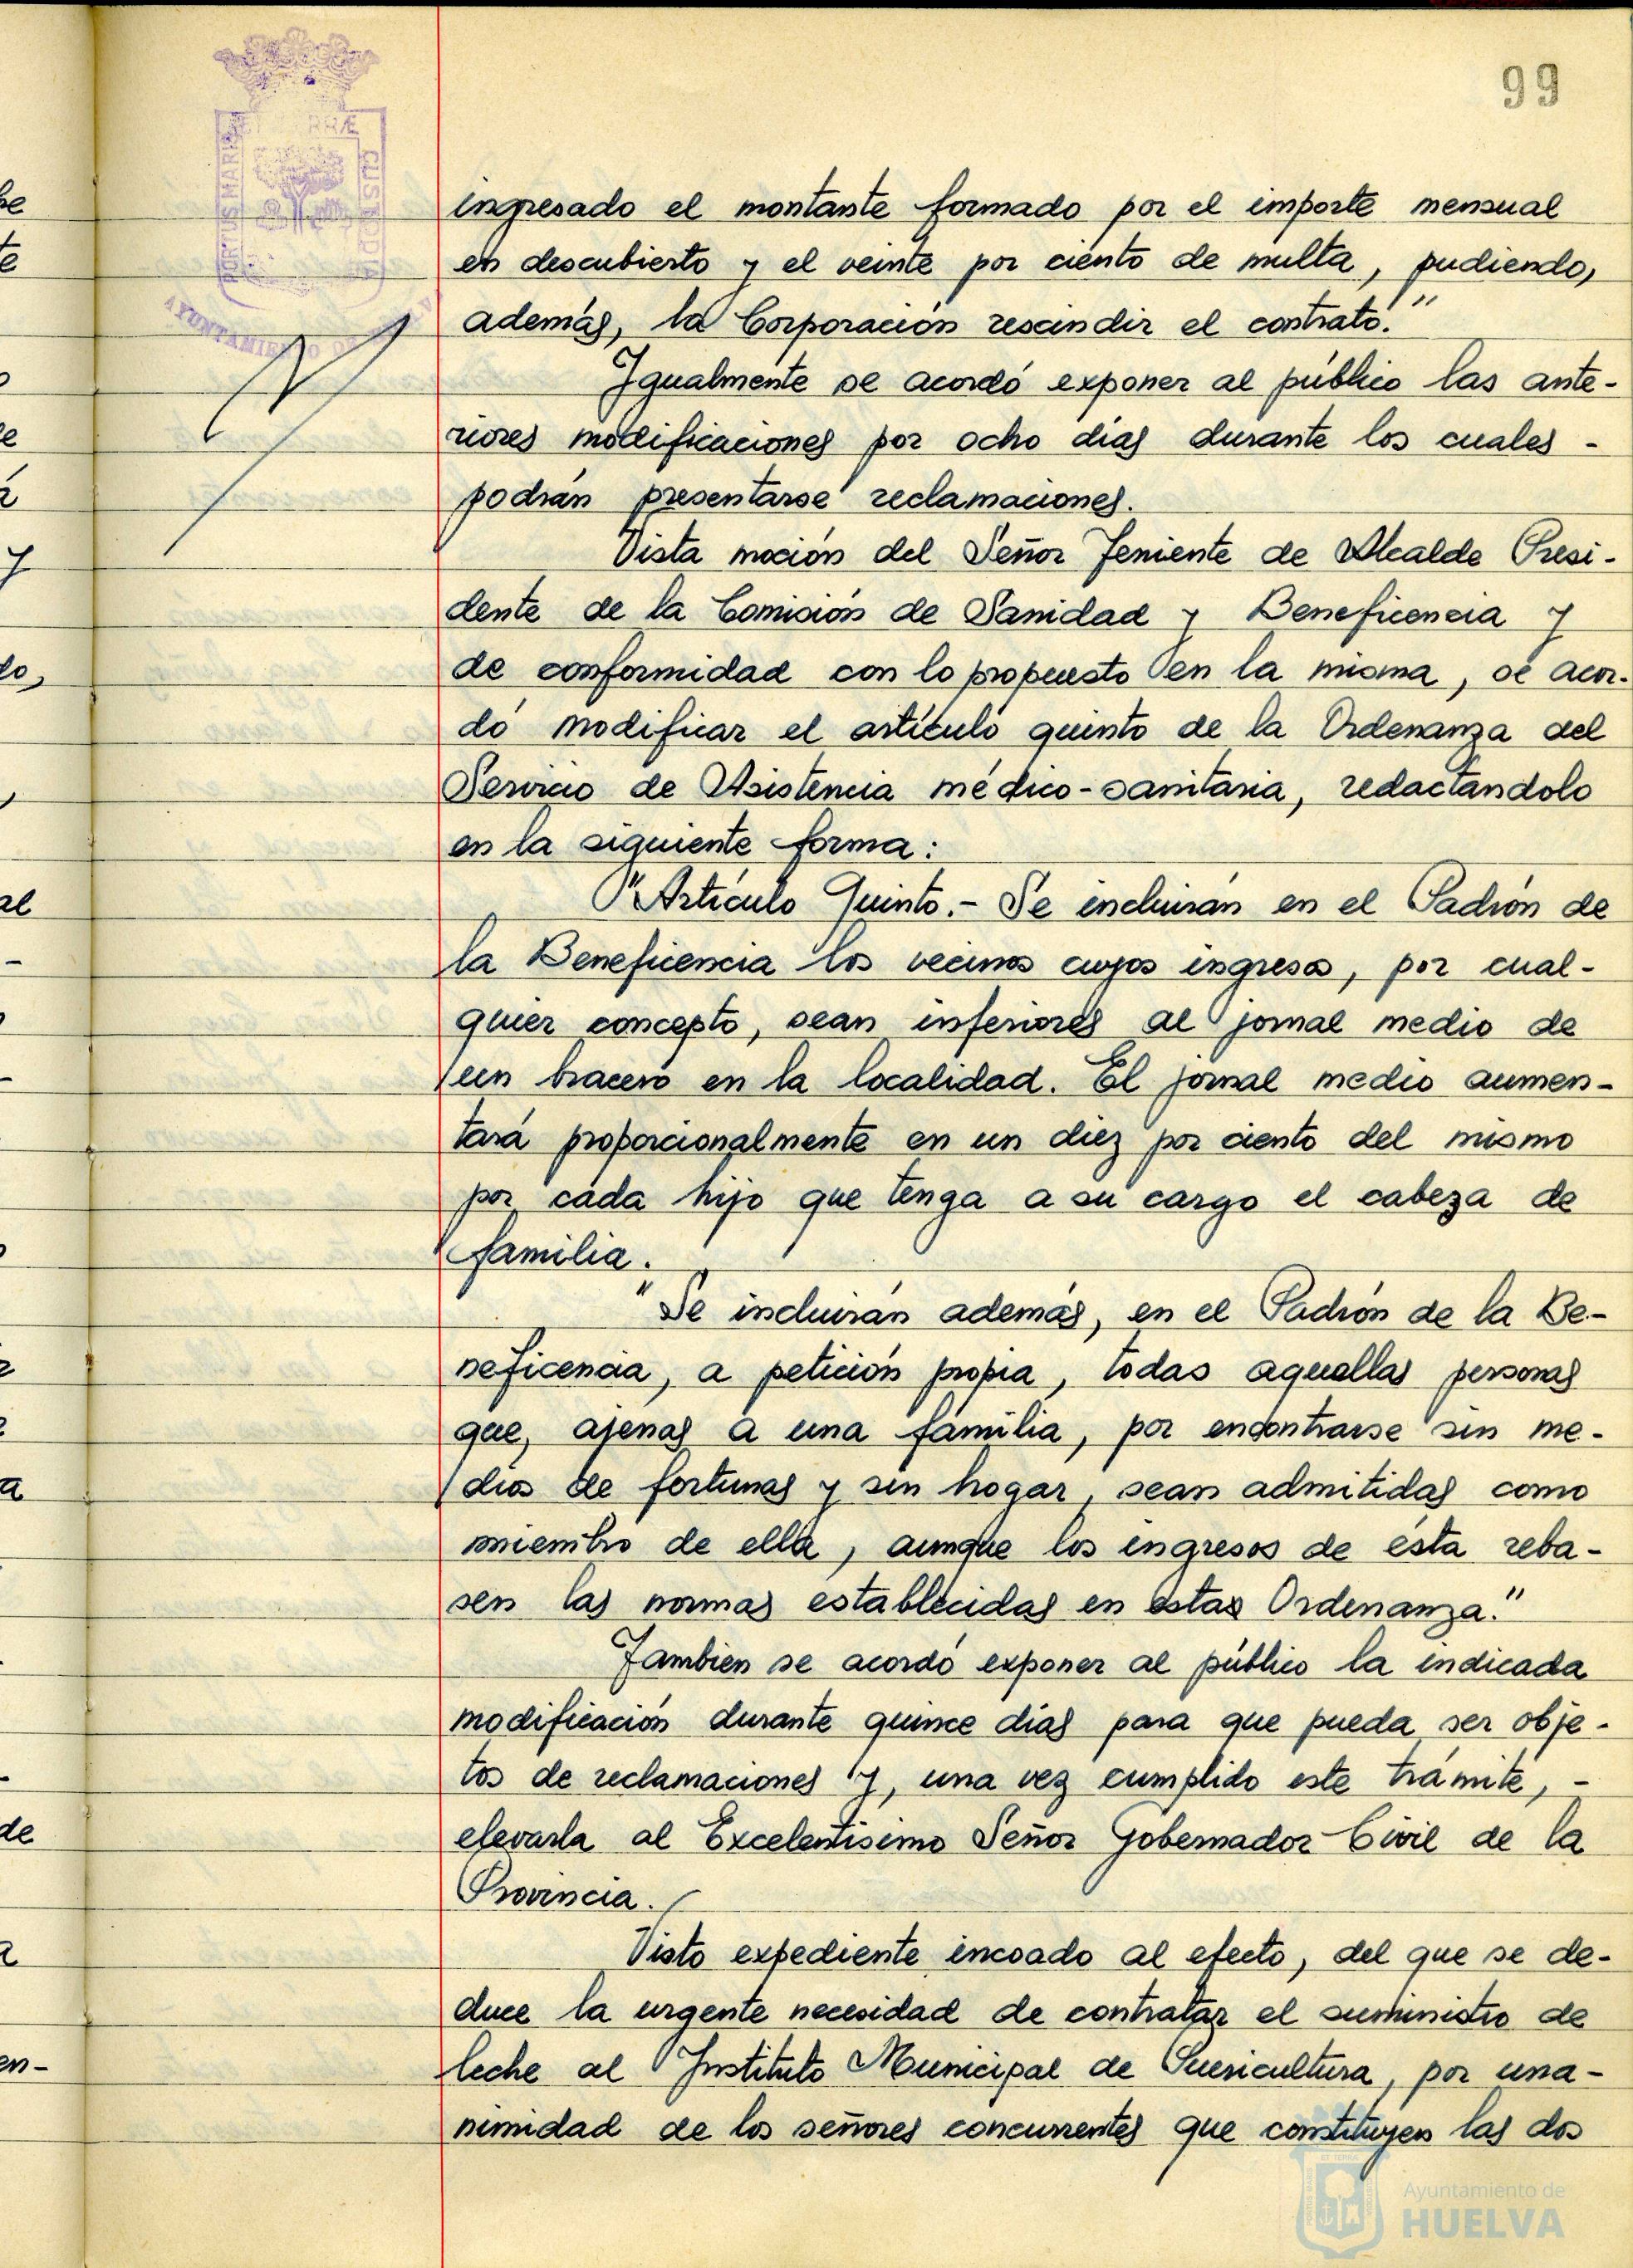 99
PORTUS MARIS ET TERRÆ CUSTODIA
AYUNTAMIENTO DE
ingresado el montante formado por el importe mensual
en descubierto y el veinte por ciento de multa, pudiendo,
además, la Corporación rescindir el contrato."
Igualmente se acordó exponer al público las ante-
riores modificaciones por ocho días durante los cuales -
podrán presentarse reclamaciones.
Vista moción del Señor Teniente de Alcalde Presi-
dente de la Comisión de Sanidad y Beneficencia y
de conformidad con lo propuesto en la misma, se acor-
dó modificar el artículo quinto de la Ordenanza del
Servicio de Asistencia médico-sanitaria, redactándolo
en la siguiente forma:
"Artículo Quinto.- Se incluirán en el Padrón de
la Beneficencia los vecinos cuyos ingresos, por cual-
quier concepto, sean inferiores al jornal medio de
un bracero en la localidad. El jornal medio aumen-
tará proporcionalmente en un diez por ciento del mismo
por cada hijo que tenga a su cargo el cabeza de
familia.
"Se incluirán además, en el Padrón de la Be-
neficencia, a petición propia, todas aquellas personas
que, ajenas a una familia, por encontrarse sin me-
dios de fortunas y sin hogar, sean admitidas como
miembro de ella, aunque los ingresos de ésta reba-
sen las normas establecidas en estas Ordenanza."
Tambien se acordó exponer al público la indicada
modificación durante quince días para que pueda ser obje-
tos de reclamaciones y, una vez cumplido este trámite, -
elevarla al Excelentísimo Señor Gobernador Civil de la
Provincia.
Visto expediente incoado al efecto, del que se de-
duce la urgente necesidad de contratar el suministro de
leche al Instituto Municipal de Puericultura, por una-
nimidad de los señores concurrentes que constituyen las dos
Ayuntamiento de
HUELVA